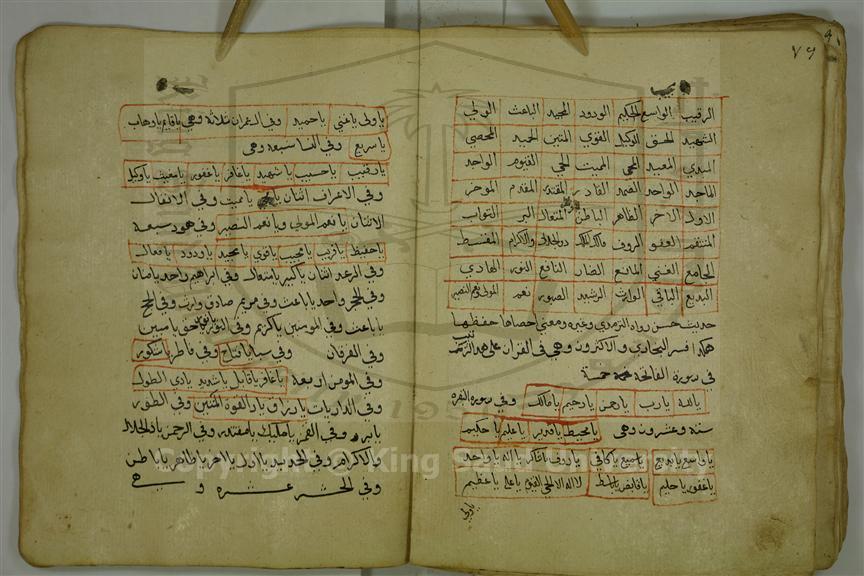 ٧٩
الرقيب الواسع الحكيم الودود المجيد الباعث الولي
الشهيد الحق الوكيل القوي المتين الحميد المحصي
المبدي المعيد المحي المميت الحي القيوم الواحد
الماجد الواحد الصمد القادر المقتدر المقدم الموخر
الاول الاخر الظاهر الباطن المتعال البر التواب
المنتقم العفو الروف مالك الملك ذو الجلال والاكرام المقسط
الجامع الغني المانع الضار النافع النور الهادي
البديع الباقي الوارث الرشيد الصبور نعم المولى ونعم النصير
حديث حسن رواه الترمذي وغيره ومعنى احصاها حفظها
هكذا فسر البخاري والاكثرون وهي في القران على هذا الترتيب
في سورة الفاتحة خمسة
يا الله يا رب يا رحمن يا رحيم يا مالك وفي سورة البقرة
ستة وعشرون وهي يا محيط يا قدير يا عليم يا حكيم
يا واسع يا بديع يا سميع يا كافي يا روف يا شاكر يا اله يا واحد
يا غفور يا حليم يا قابض يا باسط لا اله الا هو الحي القيوم يا علي يا عظيم
يا ولي
يا ولي يا غني يا حميد وفي ال عمران ثلاثة وهي يا قايم يا وهاب
يا سريع وفي النسا سبعة وهي
يا رقيب يا حسيب يا شهيد يا غافر يا غفور يا مقيت يا وكيل
وفي الاعراف اثنان يا محيي يا مميت وفي الانفال
الاثنان يا نعم المولى ويا نعم النصير وفي هود سبعة
يا حفيظ يا قريب يا مجيب يا قوي يا مجيد يا ودود يا فعال
وفي الرعد اثنان يا كبير يا متعال وفي ابراهيم واحد يا منان
وفي الحجر واحد يا باعث وفي مريم صادق وارث وفي الحج
يا باعث وفي المومنين يا كريم وفي النور يا نور حق يا مبين
وفي الفرقان وفي سبا يا فتاح وفي فاطر يا شكور
وفي المومن اربعة يا غافر يا قابل يا شديد يا ذي الطول
وفي الذاريات يا رزاق يا ذا القوة المتين وفي الطور
يا بر وفي القمر يا مليك يا مقتدر وفي الرحمن يا ذا الجلال
والاكرام وفي الحديد يا اول يا اخر يا ظاهر يا باطن
وفي الحشر عشره و هي
Copyright © King Saud University